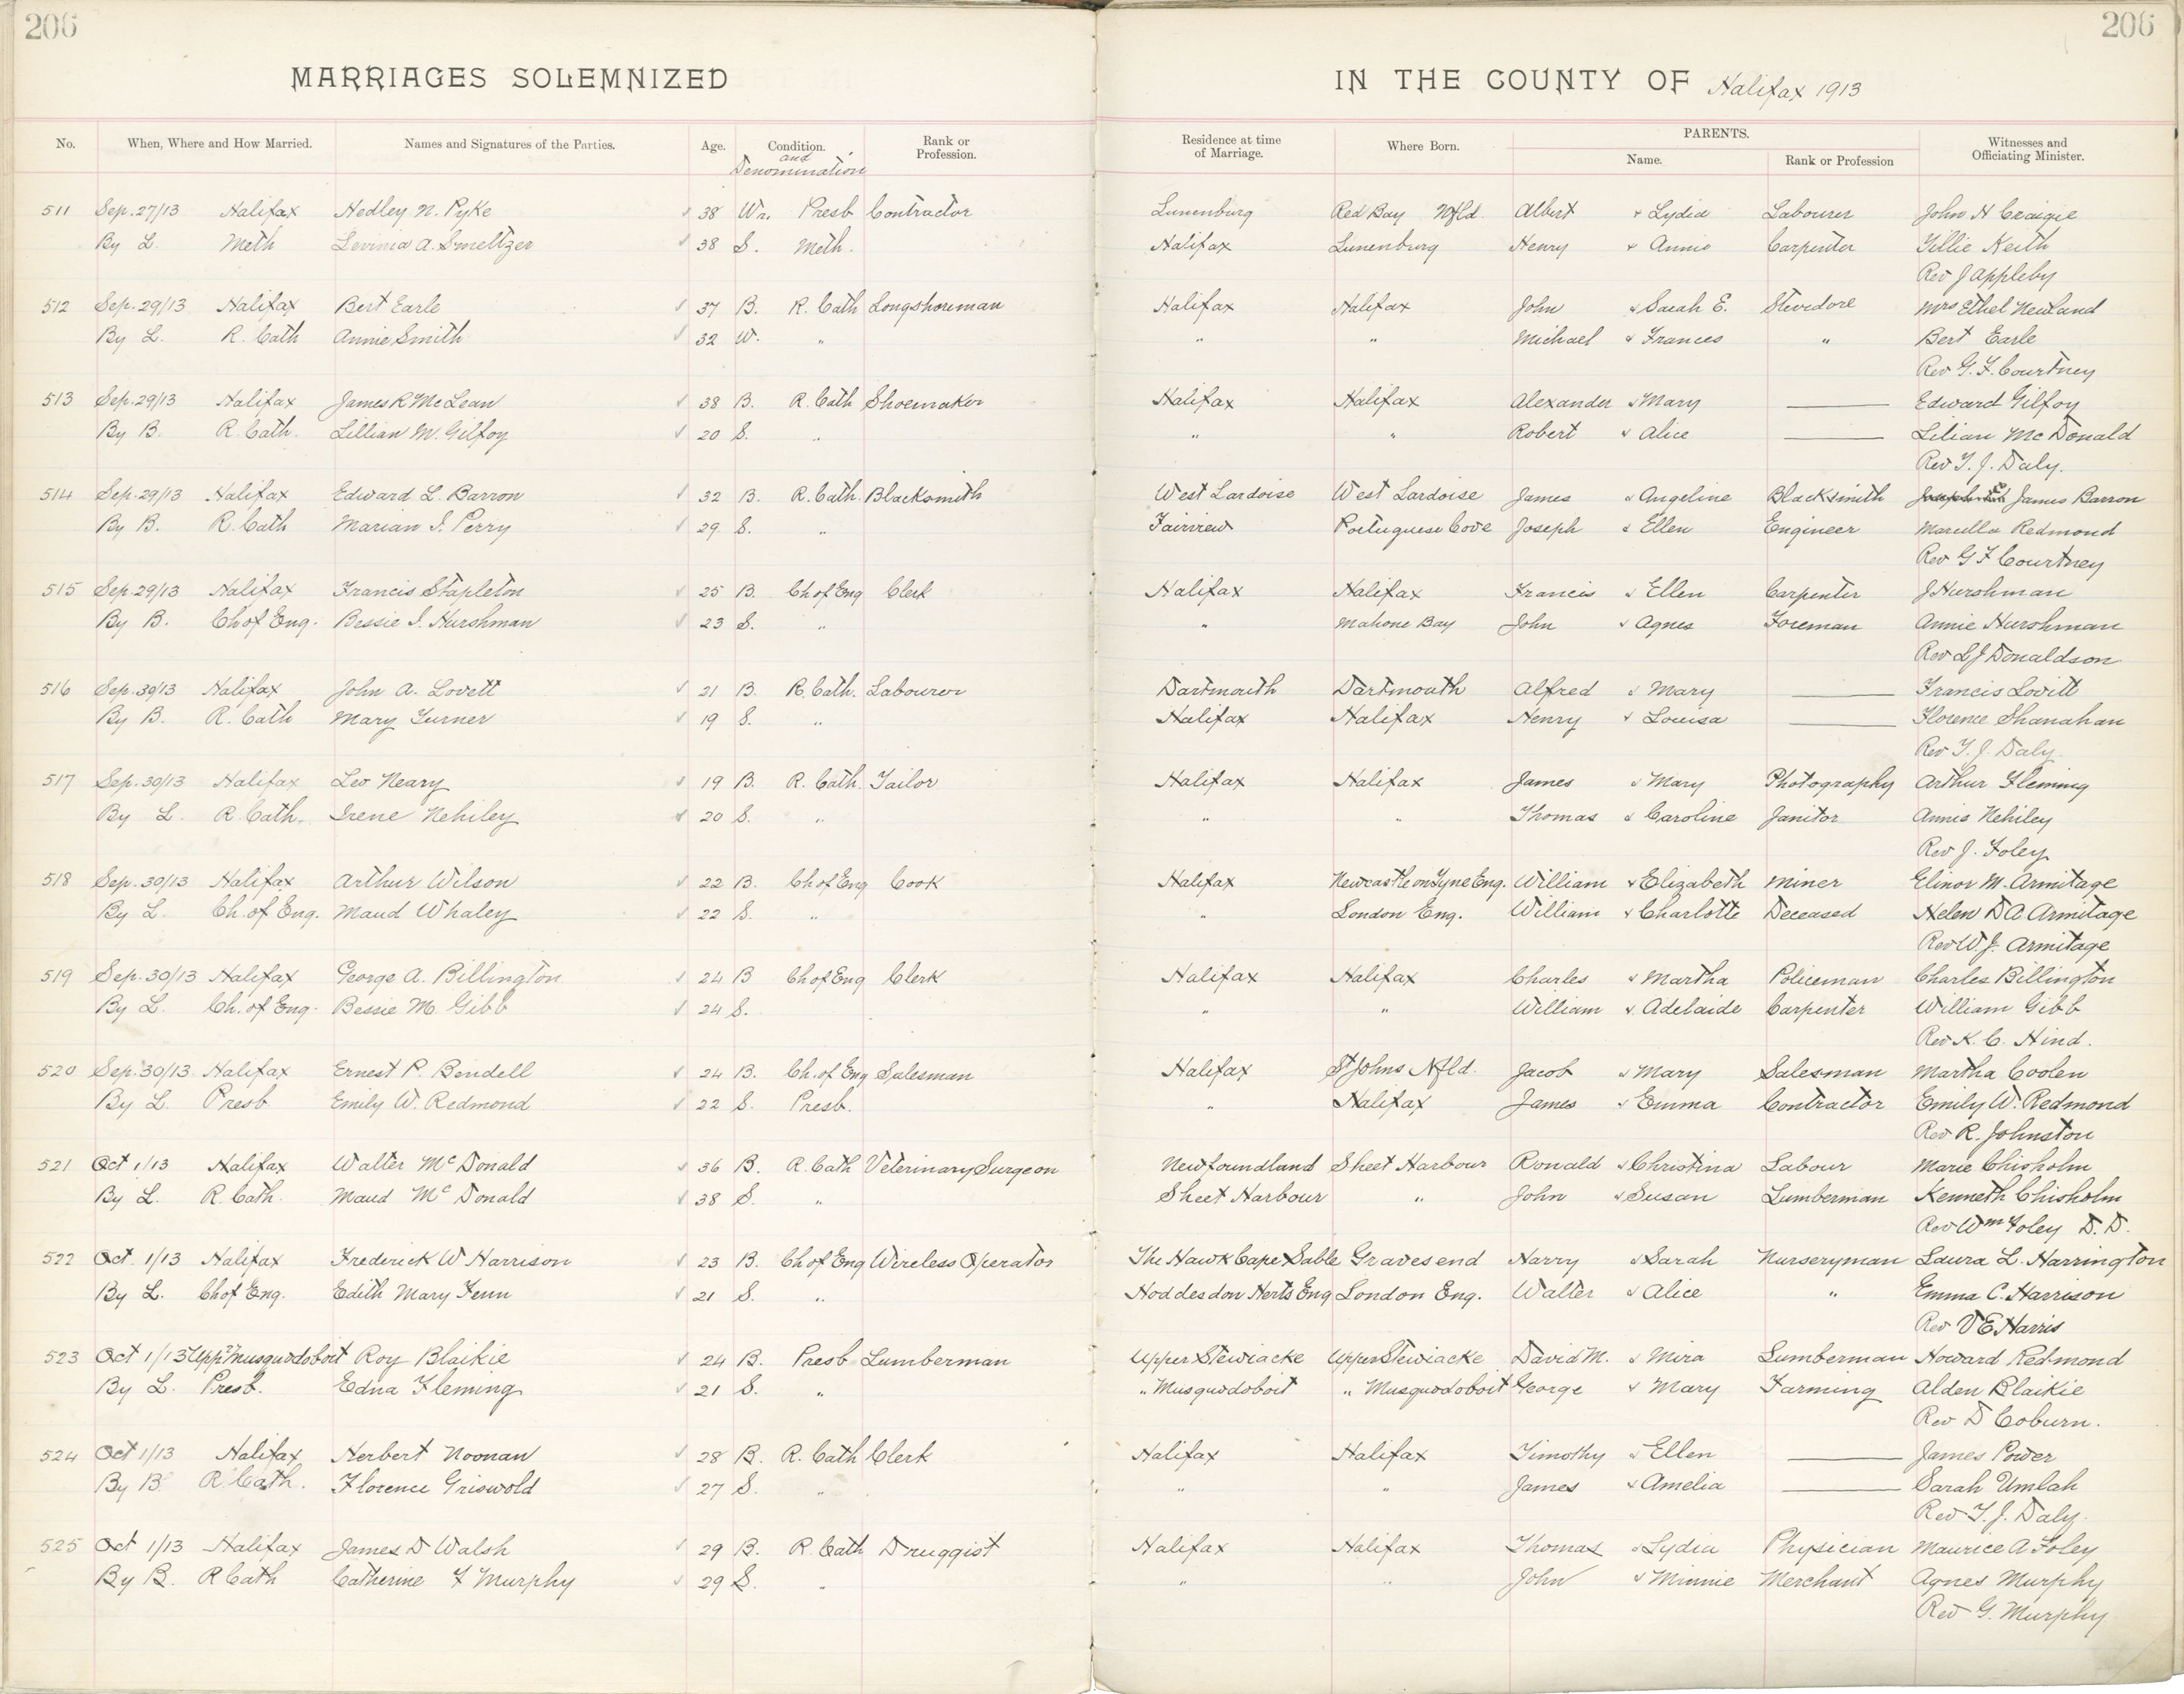 206 206
MARRIAGES SOLEMNIZED IN THE COUNTY OF Halifax 1913
No. When, Where and How Married. Names and Signatures of the Parties. Age. Condition. and Denomination Rank or Profession. Residence at time of Marriage. Where Born. PARENTS. Name. Rank or Profession Witnesses and Officiating Minister.
511 Sep. 27/13 Halifax Hedley N. Pyke 38 Wr. Presb Contractor Lunenburg Red Bay Nfld. Albert & Lydia Labourer John H Craigie
By L. Meth Levinia A. Smeltzer 38 S. Meth. Halifax Lunenburg Henry & Annie Carpenter Gillie Keith
Rev J Appleby
512 Sep. 29/13 Halifax Bert Earle 37 B. R. Cath Longshoreman Halifax Halifax John & Sarah E. Stevedore Mrs Ethel Newland
By L. R. Cath Annie Smith 32 W. " " " Michael & Frances " Bert Earle
Rev G. F. Courtney
513 Sep. 29/13 Halifax James R McLean 38 B. R. Cath Shoemaker Halifax Halifax Alexander & Mary —— Edward Gilfoy
By B. R. Cath. Lillian M. Gilfoy 20 S. " " " Robert & Alice —— Lilian McDonald
Rev T. J. Daly.
514 Sep. 29/13 Halifax Edward L. Barron 32 B. R. Cath. Blacksmith West Lardoise West Lardoise James & Angeline Blacksmith James Barron
By B. R. Cath Marian I. Perry 29 S. " Fairview Portuguese Cove Joseph & Ellen Engineer Marcella Redmond
Rev G F Courtney
515 Sep. 29/13 Halifax Francis Stapleton 25 B. Ch of Eng Clerk Halifax Halifax Francis & Ellen Carpenter J Hurshman
By B. Ch of Eng. Bessie I. Hurshman 23 S. " " Mahone Bay John & Agnes Foreman Annie Hurshman
Rev L J Donaldson
516 Sep. 30/13 Halifax John A. Lovett 21 B. R. Cath. Labourer Dartmouth Dartmouth Alfred & Mary —— Francis Lovitt
By B. R. Cath Mary Turner 19 S. " Halifax Halifax Henry & Louisa —— Florence Shanahan
Rev T. J. Daly
517 Sep. 30/13 Halifax Leo Neary 19 B. R. Cath. Tailor Halifax Halifax James & Mary Photography Arthur Fleming
By L. R. Cath. Irene Nehiley 20 S. " " " Thomas & Caroline Janitor Annie Nehiley
Rev J. Foley
518 Sep. 30/13 Halifax Arthur Wilson 22 B. Ch of Eng Cook Halifax Newcastle on Tyne Eng. William & Elizabeth Miner Elinor M. Armitage
By L. Ch. of Eng. Maud Whaley 22 S. " " London Eng. William & Charlotte Deceased Helen D A Armitage
Rev W. J. Armitage
519 Sep. 30/13 Halifax George A. Billington 24 B Ch of Eng Clerk Halifax Halifax Charles & Martha Policeman Charles Billington
By L. Ch. of Eng. Bessie M. Gibb 24 S. " " William & Adelaide Carpenter William Gibb
Rev K. C. Hind.
520 Sep. 30/13 Halifax Ernest P. Bendell 24 B. Ch. of Eng Salesman Halifax St Johns Nfld. Jacob & Mary Salesman Martha Coolen
By L. Presb Emily W. Redmond 22 S. Presb. " Halifax James & Emma Contractor Emily W. Redmond
Rev R. Johnston
521 Oct 1/13 Halifax Walter McDonald 36 B. R. Cath Veterinary Surgeon Newfoundland Sheet Harbour Ronald & Christina Labour Marie Chisholm
By L. R. Cath. Maud McDonald 38 S. " Sheet Harbour " John & Susan Lumberman Kenneth Chisholm
Rev Wm Foley D. D.
522 Oct. 1/13 Halifax Frederick W Harrison 23 B. Ch of Eng Wireless Operator The Hawk Cape Sable Gravesend Harry & Sarah Nurseryman Laura L. Harrington
By L. Ch of Eng. Edith Mary Fenn 21 S. " Hoddesdon Herts Eng London Eng. Walter & Alice " Emma C. Harrison
Rev V E Harris
523 Oct 1/13 Uppr Musquodoboit Roy Blaikie 24 B. Presb Lumberman Upper Stewiacke Upper Stewiacke David M. & Mira Lumberman Howard Redmond
By L. Presb. Edna Fleming 21 S. " " Musquodoboit " Musquodoboit George & Mary Farming Alden Blaikie
Rev D Coburn.
524 Oct 1/13 Halifax Herbert Noonan 28 B. R. Cath Clerk Halifax Halifax Timothy & Ellen —— James Power
By B R. Cath. Florence Griswold 27 S. " " " James & Amelia —— Sarah Umlah
Rev T. J. Daly.
525 Oct 1/13 Halifax James D Walsh 29 B. R. Cath Druggist Halifax Halifax Thomas & Lydia Physician Maurice A Foley
By B. R Cath Catherine F Murphy 29 S. " " " John & Minnie Merchant Agnes Murphy
Rev G. Murphy